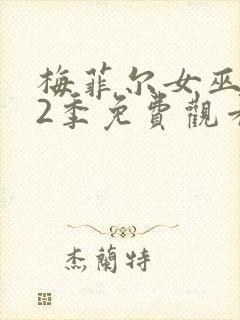 梅菲尔女巫
2季免費觀
杰蘭特